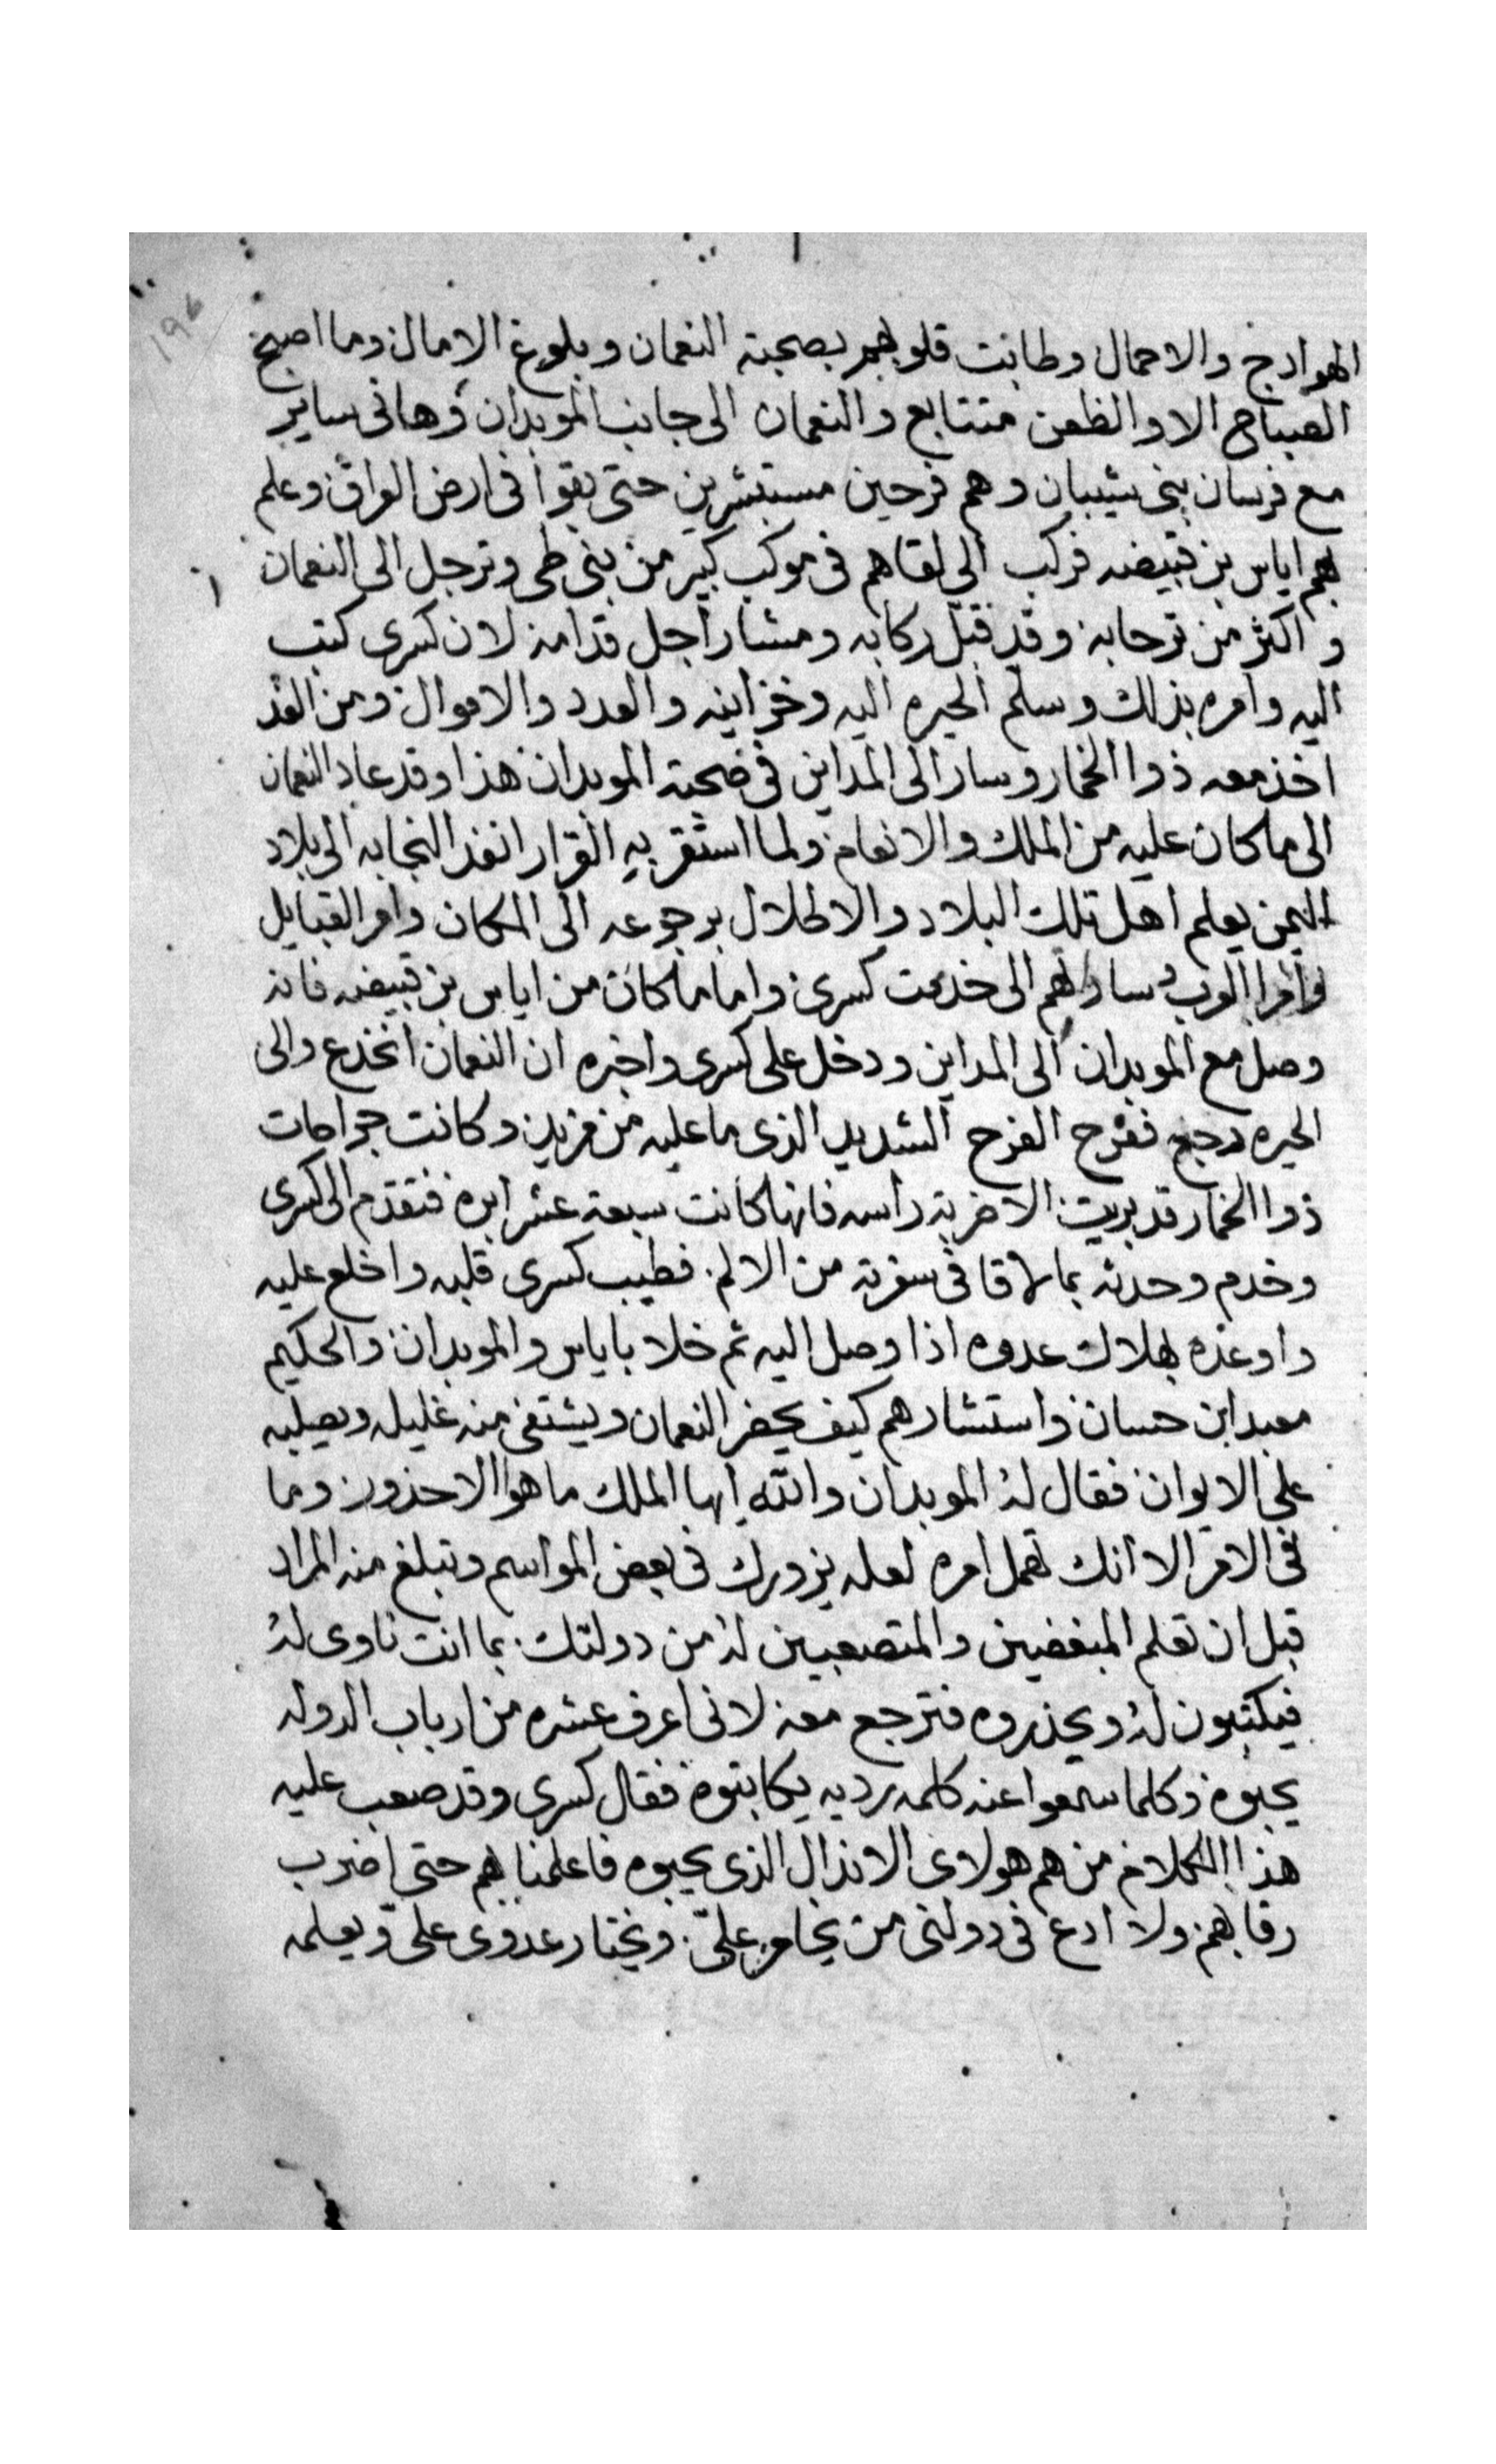 ١٩٤
الهوادج والاحمال وطابت قلوبهم بصحبته النعمان وبلوغ الامال وما اصبح
الصباح الا والظعن متتابع والنعمان الى جانب الموبدان وهانى ساير
مع فرسان بنى شيبان وهم فرحين مستبشرين حتى بقوا فى ارض العراق وعلم
بهم اياس بن قبيضه فركب الى لقاهم فى موكب كبير من بنى طى وترجل الى النعمان
و اكثر من ترحابه وقد قبل ركابه ومشا راجل قدامه لان كسرى كتب
اليه وامره بذلك وسلم الحيره اليه وخزاينه والعدد والاموال ومن الغد
اخذ معه ذوا الخمار وسار الى المداين فى صحبته الموبدان هذا وقد عاد النعمان
الى ما كان عليه من الملك والانعام ولما استقر به القرار انفذ النجابه الى بلاد
اليمن يعلم اهل تلك البلاد والاطلال برجوعه الى المكان وامر القبايل
وامرا العرب ساداتهم الى خدمت كسرى واما ما كان من اياس بن قبيضه فانه
وصل مع الموبدان الى المداين ودخل على كسرى واخبره ان النعمان انخدع والى
الحيره رجع ففرح الفرح الشديد الذى ما عليه من مزيد وكانت جراحات
ذوا الخمار قد بريت الا ضربة راسه فانها كانت سبعة عشر ابره فتقدم الى كسرى
وخدم وحدثه بما لاقا فى سفرته من الالم فطيب كسرى قلبه واخلع عليه
واوعده بهلاك عدوه اذا وصل اليه ثم خلا باياس والموبدان والحكيم
معبد ابن حسان واستشارهم كيف يحضر النعمان ويشتفى منه غليله ويصلبه
على الايوان فقال له الموبدان والله ايها الملك ما هو الا حذور وما
فى الامر الا انك تهمل امره لعله يزورك فى بعض المواسم وتبلغ منه المراد
قبل ان تعلم المبغضين والمتصعبين له من دولتك بما انت ناوى له
فيكتبون له ويحذروه فترجع معه لانى اعرف عشره من ارباب الدوله
يحبوه وكلما سمعوا عنه كلمه رديه يكاتبوه فقال كسرى وقد صعب عليه
هذا الكلام من هم هولاى الانذال الذى يحبوه فاعلمنا بهم حتى اضرب
رقابهم ولا ادع فى دولتى من يخامر علىّ ويختار عدوى علىّ ويعلمه